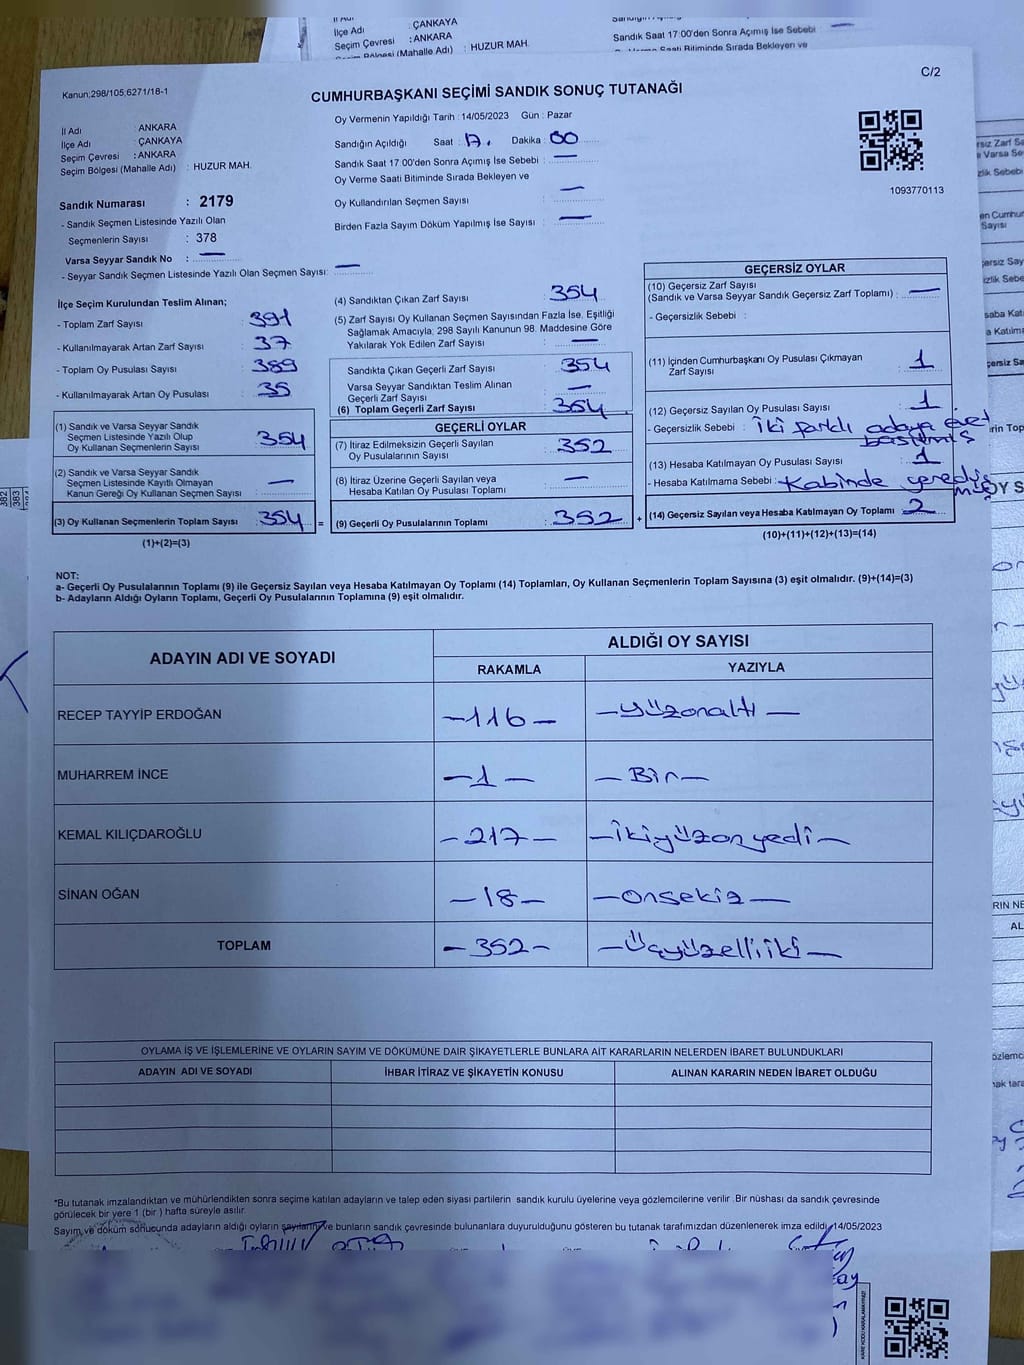 İl Adı
İlçe Adı : ÇANKAYA
Seçim Çevresi : ANKARA
Seçim Bölgesi (Mahalle Adı) : HUZUR MAH.
Sandık Saat 17:00'den Sonra Açımış İse Sebebi
Oy Verme Saati Bitiminde Sırada Bekleyen ve
C/2
Kanun;298/105,6271/18-1
CUMHURBAŞKANI SEÇİMİ SANDIK SONUÇ TUTANAĞI
İl Adı : ANKARA
İlçe Adı : ÇANKAYA
Seçim Çevresi : ANKARA
Seçim Bölgesi (Mahalle Adı) : HUZUR MAH.
Sandık Numarası : 2179
- Sandık Seçmen Listesinde Yazılı Olan
Seçmenlerin Sayısı : 378
Varsa Seyyar Sandık No : —
- Seyyar Sandık Seçmen Listesinde Yazılı Olan Seçmen Sayısı: —
Oy Vermenin Yapıldığı Tarih : 14/05/2023 Gün : Pazar
Sandığın Açıldığı Saat : 17. Dakika : 00
Sandık Saat 17:00'den Sonra Açımış İse Sebebi : —
Oy Verme Saati Bitiminde Sırada Bekleyen ve
Oy Kullandırılan Seçmen Sayısı : —
Birden Fazla Sayım Döküm Yapılmış İse Sayısı : —
1093770113
İlçe Seçim Kurulundan Teslim Alınan;
- Toplam Zarf Sayısı : 391
- Kullanılmayarak Artan Zarf Sayısı : 37
- Toplam Oy Pusulası Sayısı : 389
- Kullanılmayarak Artan Oy Pusulası : 35
(1) Sandık ve Varsa Seyyar Sandık
Seçmen Listesinde Yazılı Olup
Oy Kullanan Seçmenlerin Sayısı : 354
(2) Sandık ve Varsa Seyyar Sandık
Seçmen Listesinde Kayıtlı Olmayan
Kanun Gereği Oy Kullanan Seçmen Sayısı : —
(3) Oy Kullanan Seçmenlerin Toplam Sayısı : 354 =
(1)+(2)=(3)
(4) Sandıktan Çıkan Zarf Sayısı : 354
(5) Zarf Sayısı Oy Kullanan Seçmen Sayısından Fazla İse, Eşitliği
Sağlamak Amacıyla; 298 Sayılı Kanunun 98. Maddesine Göre
Yakılarak Yok Edilen Zarf Sayısı : —
Sandıkta Çıkan Geçerli Zarf Sayısı : 354
Varsa Seyyar Sandıktan Teslim Alınan
Geçerli Zarf Sayısı : —
(6) Toplam Geçerli Zarf Sayısı : 354
GEÇERLİ OYLAR
(7) İtiraz Edilmeksizin Geçerli Sayılan
Oy Pusulalarının Sayısı : 352
(8) İtiraz Üzerine Geçerli Sayılan veya
Hesaba Katılan Oy Pusulası Toplamı : —
(9) Geçerli Oy Pusulalarının Toplamı : 352 +
GEÇERSİZ OYLAR
(10) Geçersiz Zarf Sayısı
(Sandık ve Varsa Seyyar Sandık Geçersiz Zarf Toplamı) : —
- Geçersizlik Sebebi :
(11) İçinden Cumhurbaşkanı Oy Pusulası Çıkmayan
Zarf Sayısı : 1
(12) Geçersiz Sayılan Oy Pusulası Sayısı : 1
- Geçersizlik Sebebi : iki farklı adaya evet
basılmış
(13) Hesaba Katılmayan Oy Pusulası Sayısı : 1
- Hesaba Katılmama Sebebi : Kabinde
(14) Geçersiz Sayılan veya Hesaba Katılmayan Oy Toplamı : 2
(10)+(11)+(12)+(13)=(14)
NOT:
a- Geçerli Oy Pusulalarının Toplamı (9) ile Geçersiz Sayılan veya Hesaba Katılmayan Oy Toplamı (14) Toplamları, Oy Kullanan Seçmenlerin Toplam Sayısına (3) eşit olmalıdır. (9)+(14)=(3)
b- Adayların Aldığı Oyların Toplamı, Geçerli Oy Pusulalarının Toplamına (9) eşit olmalıdır.
ADAYIN ADI VE SOYADI
ALDIĞI OY SAYISI
RAKAMLA YAZIYLA
RECEP TAYYİP ERDOĞAN —116— —yüzonaltı—
MUHARREM İNCE —1— —Bir—
KEMAL KILIÇDAROĞLU —217— —ikiyüzonyedi—
SİNAN OĞAN —18— —onsekiz—
TOPLAM —352— —Üçyüzelliiki—
OYLAMA İŞ VE İŞLEMLERİNE VE OYLARIN SAYIM VE DÖKÜMÜNE DAİR ŞİKAYETLERLE BUNLARA AİT KARARLARIN NELERDEN İBARET BULUNDUKLARI
ADAYIN ADI VE SOYADI İHBAR İTİRAZ VE ŞİKAYETİN KONUSU ALINAN KARARIN NEDEN İBARET OLDUĞU
*Bu tutanak imzalandıktan ve mühürlendikten sonra seçime katılan adayların ve talep eden siyasi partilerin sandık kurulu üyelerine veya gözlemcilerine verilir .Bir nüshası da sandık çevresinde
görülecek bir yere 1 (bir ) hafta süreyle asılır.
Sayım ve döküm sonucunda adayların aldığı oyların sayılarını ve bunların sandık çevresinde bulunanlara duyurulduğunu gösteren bu tutanak tarafımızdan düzenlenerek imza edildi. 14/05/2023